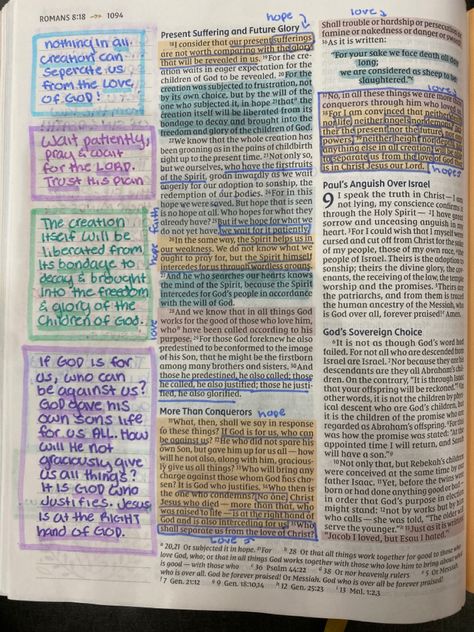 ROMANS 8:18 1094
nothing in all
creation can
seperate us
from the love
of GOD!
Wait patiently,
pray & wait
for the LORD.
Trust this plan
The creation
itself will be
liberated from
its bondage to
decay & brought
into the freedom
& glory of the
Children of God.
If GOD is for
us, who can
be against us?
GOD gave his
own sons life
for us ALL. How
will He not
graciously give
us all things?
It is GOD who
Justifies. Jesus
is at the RIGHT
hand of GOD.
hope
faith
hope
love
Present Suffering and Future Glory
18 I consider that our present sufferings
are not worth comparing with the glory
that will be revealed in us. 19 For the cre-
ation waits in eager expectation for the
children of God to be revealed. 20 For the
creation was subjected to frustration, not
by its own choice, but by the will of the
one who subjected it, in hope 21 that the
creation itself will be liberated from its
bondage to decay and brought into the
freedom and glory of the children of God.
22 We know that the whole creation has
been groaning as in the pains of childbirth
right up to the present time. 23 Not only so,
but we ourselves, who have the firstfruits
of the Spirit, groan inwardly as we wait
eagerly for our adoption to sonship, the
redemption of our bodies. 24 For in this
hope we were saved. But hope that is seen
is no hope at all. Who hopes for what they
already have? 25 But if we hope for what we
do not yet have, we wait for it patiently.
26 In the same way, the Spirit helps us in
our weakness. We do not know what we
ought to pray for, but the Spirit himself
intercedes for us through wordless groans.
27 And he who searches our hearts knows
the mind of the Spirit, because the Spirit
intercedes for God's people in accordance
with the will of God.
28 And we know that in all things God
works for the good of those who love him,
who have been called according to his
purpose. 29 For those God foreknew he also
predestined to be conformed to the image of
his Son, that he might be the firstborn
among many brothers and sisters. 30 And
those he predestined, he also called; those
he called, he also justified; those he justi-
fied, he also glorified.
More Than Conquerors
hope
31 What, then, shall we say in response
to these things? If God is for us, who can
be against us? 32 He who did not spare his
own Son, but gave him up for us all — how
will he not also, along with him, gracious-
ly give us all things? 33 Who will bring
any charge against those whom God has cho-
sen? It is God who justifies. 34 Who then is
the one who condemns? No one. Christ
Jesus who died — more than that, who
was raised to life — is at the right hand of
God and is also interceding for us. 35 Who
shall separate us from the love of Christ?
Love
love
Shall trouble or hardship or persecution or
famine or nakedness or danger or sword?
36 As it is written:
"For your sake we face death all day
long;
we are considered as sheep to be
slaughtered."
37 No, in all these things we are more than
conquerors through him who loved us.
38 For I am convinced that neither death
nor life, neither angels nor demons, nei-
ther the present nor the future, nor any
powers, 39 neither height nor depth, nor
anything else in all creation, will be able
to separate us from the love of God that
is in Christ Jesus our Lord.
hope
Paul's Anguish Over Israel
9 I speak the truth in Christ — I am
not lying, my conscience confirms it
through the Holy Spirit — 2 I have great
sorrow and unceasing anguish in my
heart. 3 For I could wish that I myself were
cursed and cut off from Christ for the sake
of my people, those of my own race, 4 the
people of Israel. Theirs is the adoption to
sonship; theirs the divine glory, the cov-
enants, the receiving of the law, the temple
worship and the promises. 5 Theirs are
the patriarchs, and from them is traced
the human ancestry of the Messiah, who
is God over all, forever praised! Amen.
God's Sovereign Choice
6 It is not as though God's word had
failed. For not all who are descended from
Israel are Israel. 7 Nor because they are his
descendants are they all Abraham's chil-
dren. On the contrary, "It is through Isaac
that your offspring will be reckoned." 8 In
other words, it is not the children by phys-
ical descent who are God's children, but
it is the children of the promise who are
regarded as Abraham's offspring. 9 For this
was how the promise was stated: "At the
appointed time I will return, and Sarah
will have a son."
10 Not only that, but Rebekah's children
were conceived at the same time by our
father Isaac. 11 Yet, before the twins were
born or had done anything good or bad —
in order that God's purpose in election
might stand: 12 not by works but by him
who calls — she was told, "The older will
serve the younger." 13 Just as it is written:
"Jacob I loved, but Esau I hated."
20,21 Or subjected it in hope. 21 For 28 Or that all things work together for good to those who
love God, who; or that in all things God works together with those who love him to bring about what
is good — with those who 36 Psalm 44:22 38 Or nor heavenly rulers 5 Or Messiah,
who is over all. God be forever praised! Or Messiah. God who is over all be forever praised!
7 Gen. 21:12 9 Gen. 18:10,14 12 Gen. 25:23 13 Mal. 1:2,3